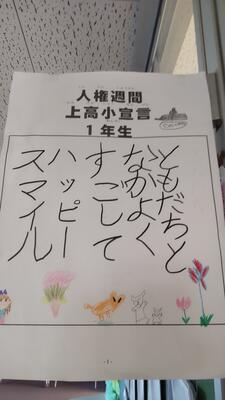 人権週間
上高小宣言
1年生
ともだちと
なかよく
すごして
ハッピー
スマイル
- 1 -